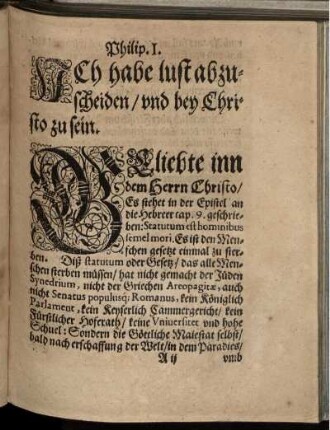 Philip. 1.
ICh habe lust abzu-
scheiden / vnd bey Chri-
sto zu sein.
GEliebte inn
dem Herrn Christo /
Es stehet in der Epistel an
die Hebreer cap. 9. geschrie-
ben: Statutum est hominibus
semel mori. Es ist den Men-
schen gesetzt einmal zu ster-
ben. Diß statutum oder Gesetz / das alle Men-
schen sterben müssen / hat nicht gemacht der Jüden
Synedrium, nicht der Griechen Areopagitæ, auch
nicht Senatus populusq; Romanus, kein Königlich
Parlament, kein Keyserlich Cammergericht / kein
Fürstlicher Hoferath / keine Vniuersitet vnd hohe
Schuel: Sondern die Göttliche Maiestat selbst /
bald nach erschaffung der Welt / in dem Paradies /
A ij vmb